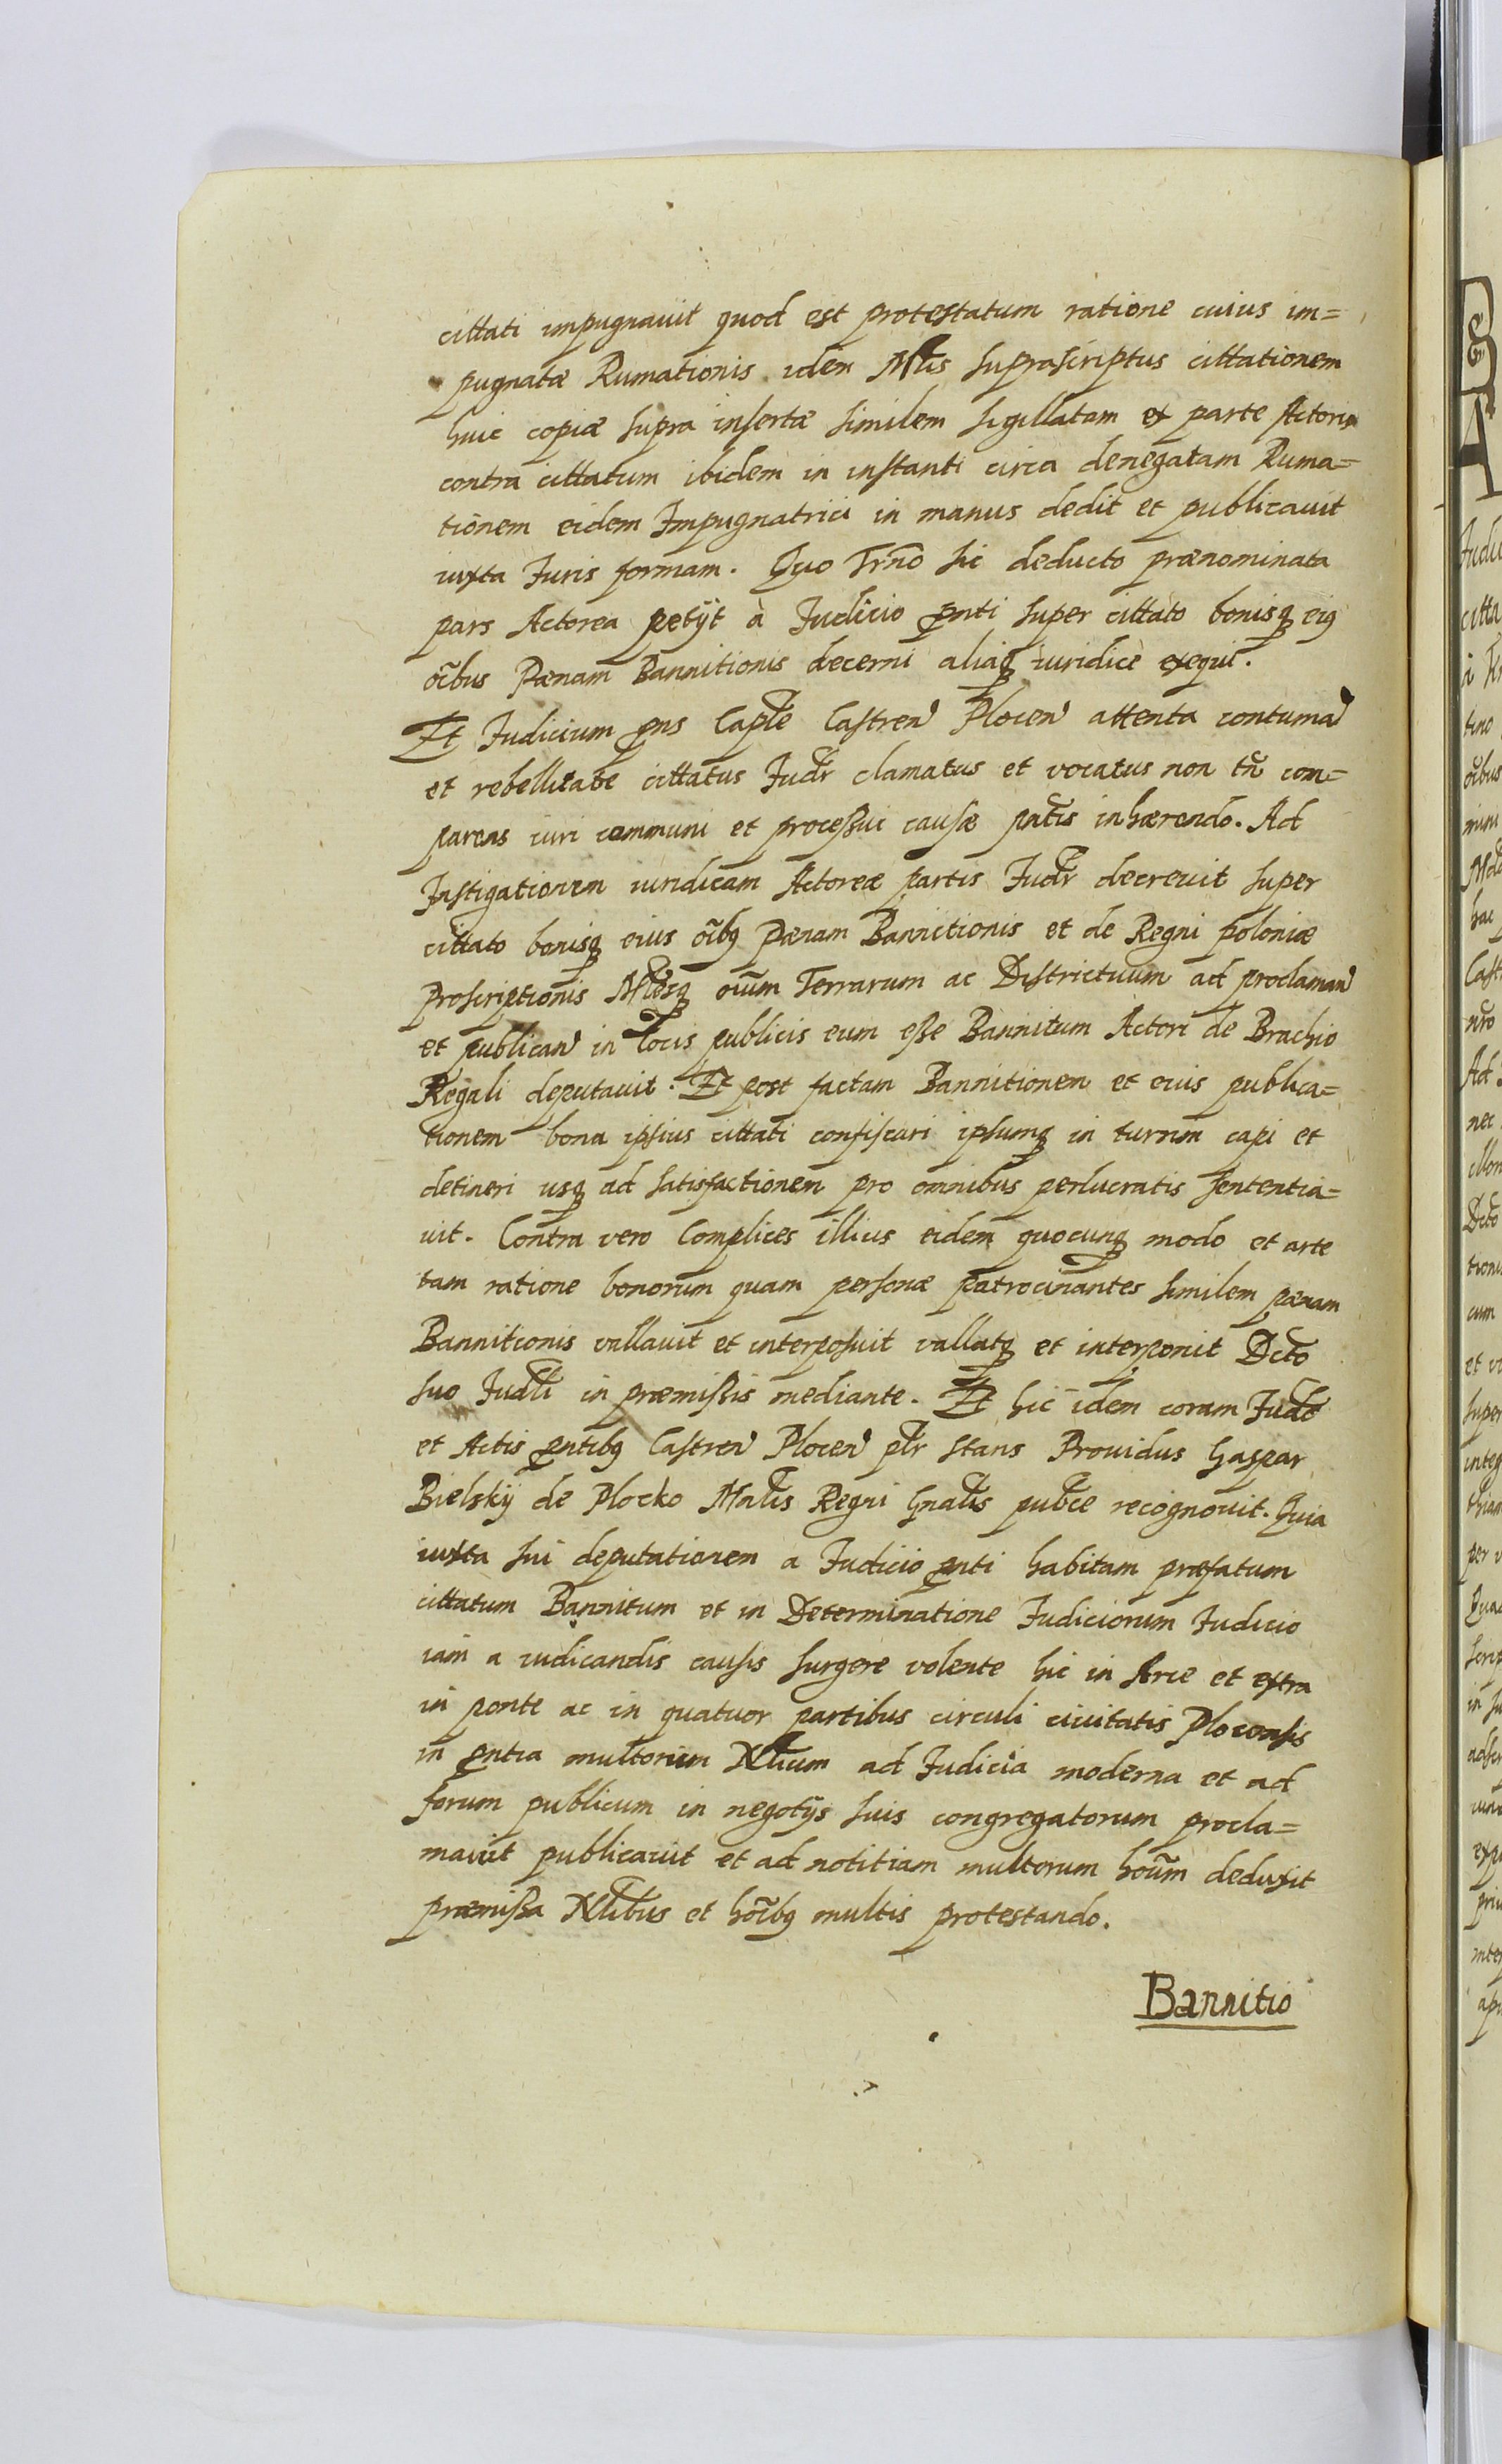 cittati impugnauit quod est protestatum ratione cuius im=
pugnatæ Rumationis idem Mtis suprascriptus cittationem
huic copiæ supra insertæ similem sigillatam ex parte Actoris
contra cittatum ibidem in instanti circa denegatam Ruma=
tionem eidem Impugnatrici in manus dedit et publicauit
iuxta Juris formam. Quo Trno sic deducto prænominata
pars Actorea petijt à Judicio pnti super cittato bonisq eig
oibus Pænam Bannitionis decerni aliaq iuridicè exequi.
Et Judicium pns Caple Castren Plocen attenta contuma
et rebellitate cittatus Judr clamatus et vocatus non tn com=
parens iuri communi et processui causæ patis inhærendo. Ad
Instigationem iuridicam Actoreæ partis Judr decreuit super
cittato bonisq eius oibq Pænam Bannitionis et de Regni poloniæ
proscriptionis Mlesq oium Terrarum ac Districtuum ad proclaman
et publican in locis publicis eum esse Bannitum Actori de Brachio
Regali deputauit. Et post factam Bannitionem et eius publica=
tionem bona ipsius cittati confiscari ipsumq in turrim capi et
detineri usq ad satisfactionem pro omnibus perlucratis sententia=
uit. Contra vero Complices illius eidem quocunq modo et arte
tam ratione bonorum quam personæ patrocinantes similem pænam
Bannitionis vallauit et interposuit vallatq et interponit Dcto
suo Judli in præmissis mediante. Et hic idem coram Judo
et Actis pntibq Castren Plocen plr stans Prouidus Gaspar
Bielskÿ de Plocko Mnlis Regni Gnalis pubce recognouit. Quia
iuxta sui deputationem a Judicio pnti habitam præfatum
cittatum Bannitum et in Determinatione Judiciorum Judicio
iam a iudicandis causis surgere volente hic in Arce et extra
in ponte ac in quatuor partibus circuli ciuitatis Plocensis
in pntia multorum Nlium ad Judicia moderna et ad
forum publicum in negotijs suis congregatorum procla=
mauit publicauit et ad notitiam multorum houm deduxit
præmissa Nlibus et hoibq multis protestando.
Bannitio